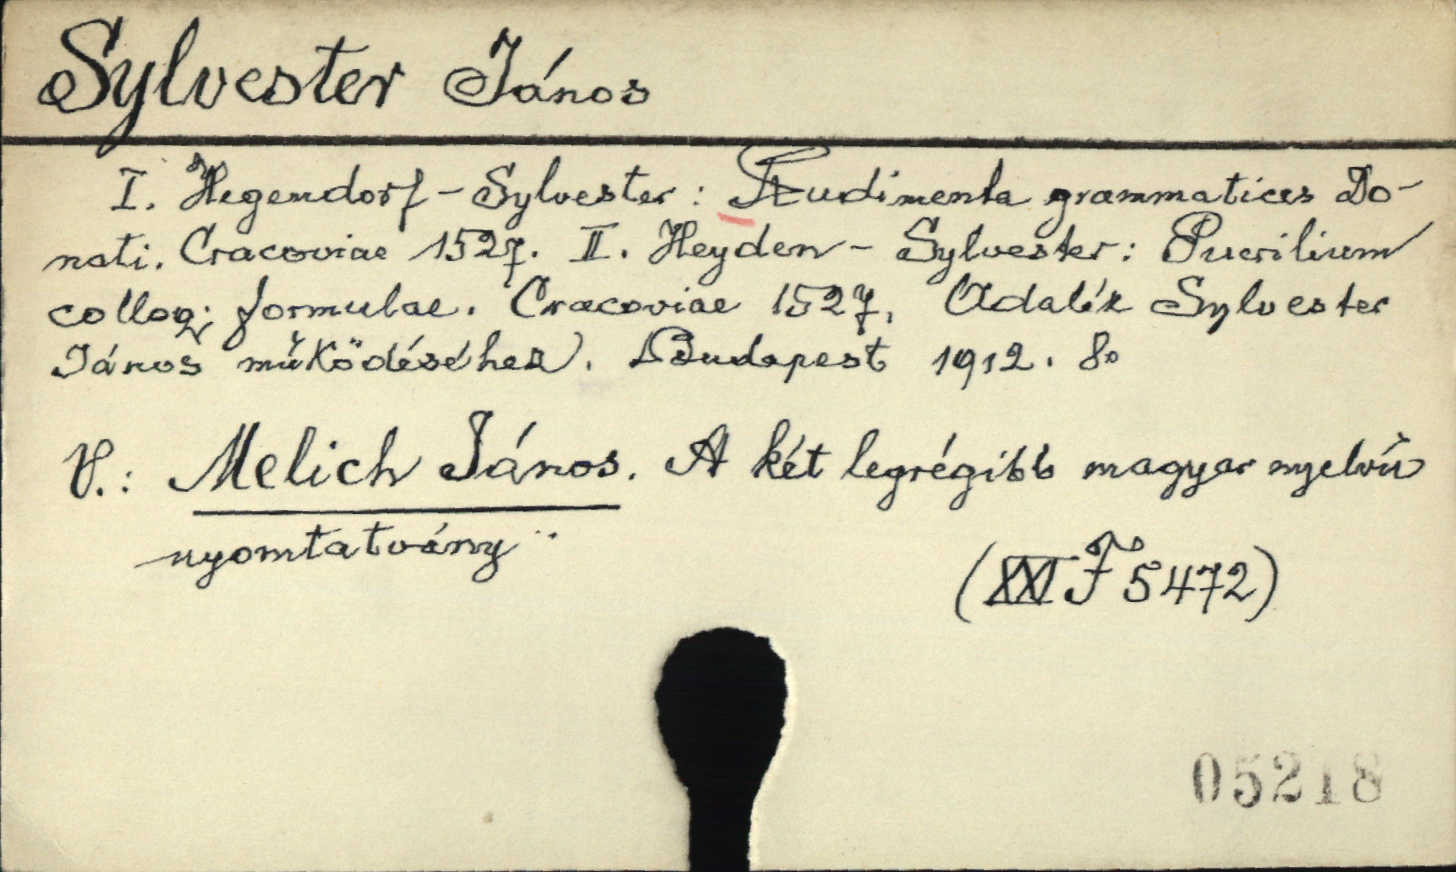 Sylvester János
I. Hegendorf - Sylvester: Rudimenta grammatices Do-
nati. Cracoviae 1527. II. Heyden - Sylvester: Puerilium
colloq; formulae. Cracoviae 1527, Adalék Sylvester
János működéséhez. Budapest 1912. 8o
V.: Melich János. A két legrégibb magyar nyelvű
nyomtatvány
(XXI F 5472)
05218